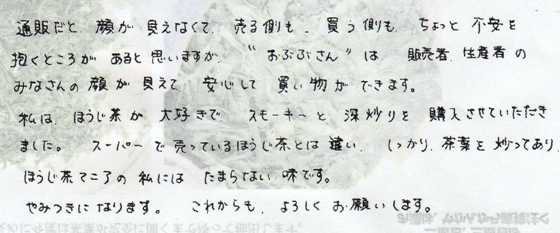 通販だと 顔が 見えなくて、売る側も、買う側も、ちょっと 不安を
抱くところが あると思いますが、“おぶぶさん”は 販売者、生産者の
みなさんの 顔が 見えて、安心して 買い物が できます。
私は、ほうじ茶が 大好きで スモーキーと 深炒りを 購入させていただき
ました。 スーパーで 売っているほうじ茶とは 違い、 しっかり、茶葉を 炒ってあり、
ほうじ茶マニアの 私には たまらない 味です。
やみつきに なります。 これからも、よろしく お願いします。